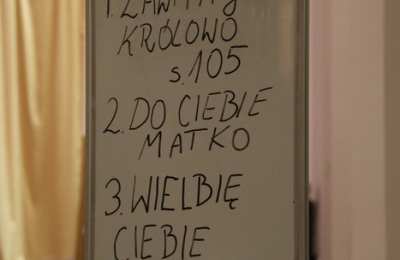 KRÓLOWO
s.105
2. DO CIEBIE
MATKO
3. WIELBIĘ
CIEBIE